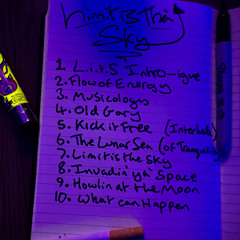 Limit is Tha
Sky
1. L.i.t.S Intro-igue
2. Flow of Energy
3. Musicology
4. Old Gory
5. Kick it Free (Interlude)
6. The Lunar Sea (of Tranquility)
7. Limit is the Sky
8. Invadin' ya Space
9. Howlin at the Moon
10. What can Happen